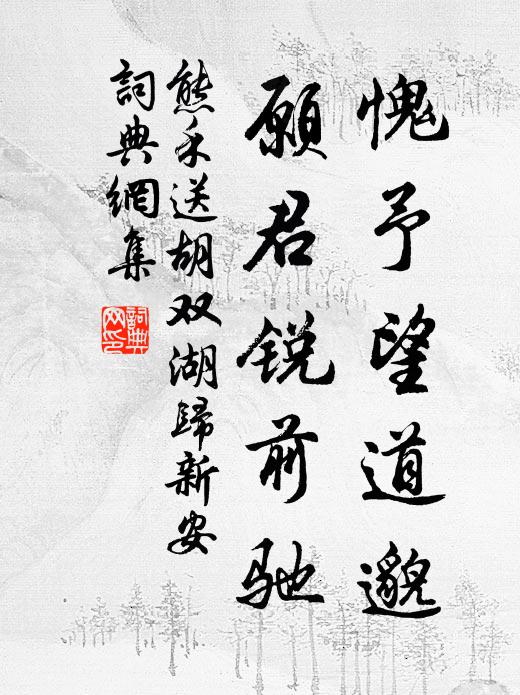 愧予望道邈
願君锐前驰
熊禾送胡双湖歸新安
詞典網集
詞典网印